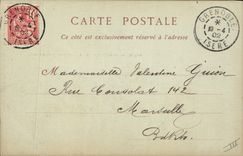 CARTE POSTALE
Ce côté est exclusivement réservé à l'adresse
GRENOBLE
ISÈRE
GRENOBLE
ISÈRE
Mademoiselle Valentine Guion
Rue Consolat 142
Marseille